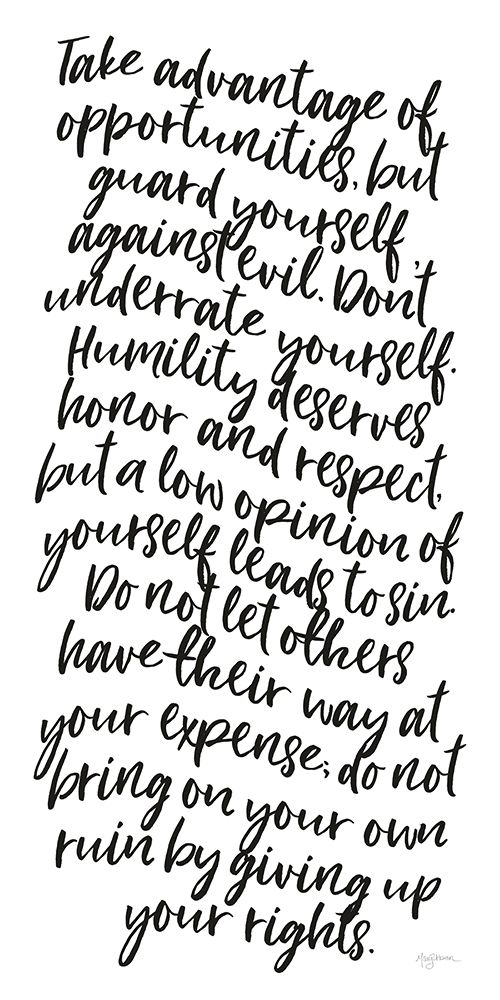 Take advantage of
opportunities, but
guard yourself
against evil. Don't
underrate yourself.
Humility deserves
honor and respect,
but a low opinion of
yourself leads to sin.
Do not let others
have their way at
your expense; do not
bring on your own
ruin by giving up
your rights.